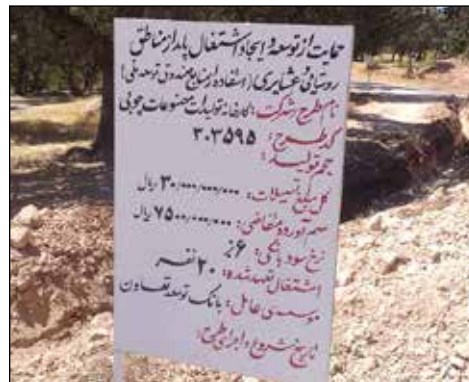 حمایت از توسعه و ایجاد اشتغال پایدار مناطق
روستائی و عشایری (استفاده از منابع صندوق توسعه ملی)
نام طرح شرکت: کارخانه تولیدات مصنوعات چوبی
کد طرح: ۳۰۳۵۹۵
حجم تولید:
کل مبلغ تسهیلات: ۳۰/۰۰۰/۰۰۰/۰۰۰ ریال
سهم آورده متقاضی: ۷۵۰۰/۰۰۰/۰۰۰ ریال
نرخ سود بانکی: ۶٪
اشتغال تعهد شده: ۲۰ نفر
موسسه عامل: بانک توسعه تعاون
تاریخ شروع و اجرای طرح: